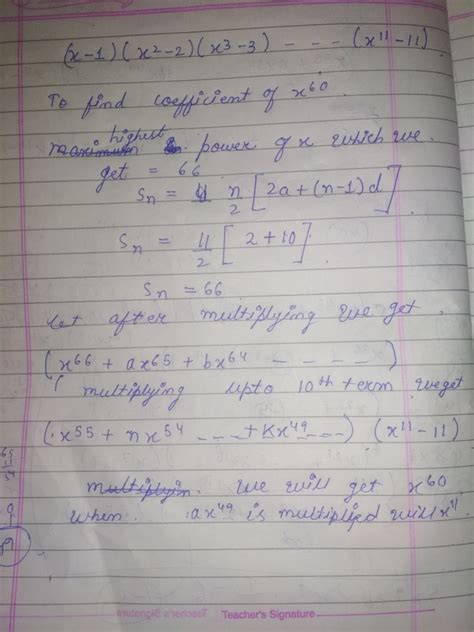 (x-1) (x²-2) (x³-3) - - - - (x¹¹-11)
To find coefficient of x⁶⁰.
highest
maximum power of x which we
get = 66
Sn = n/2 [2a + (n-1)d]
Sn = 11/2 [2 + 10]
Sn = 66
let after multiplying we get.
(x⁶⁶ + ax⁶⁵ + bx⁶⁴ - - - - -)
multiplying upto 10th term we get
(x⁵⁵ + nx⁵⁴ - - - + Kx⁴⁹ - - - -) (x¹¹-11)
multiplyin. We will get x⁶⁰
when ax⁴⁹ is multiplied will x¹¹
Teacher's Signature
Teacher's Signature